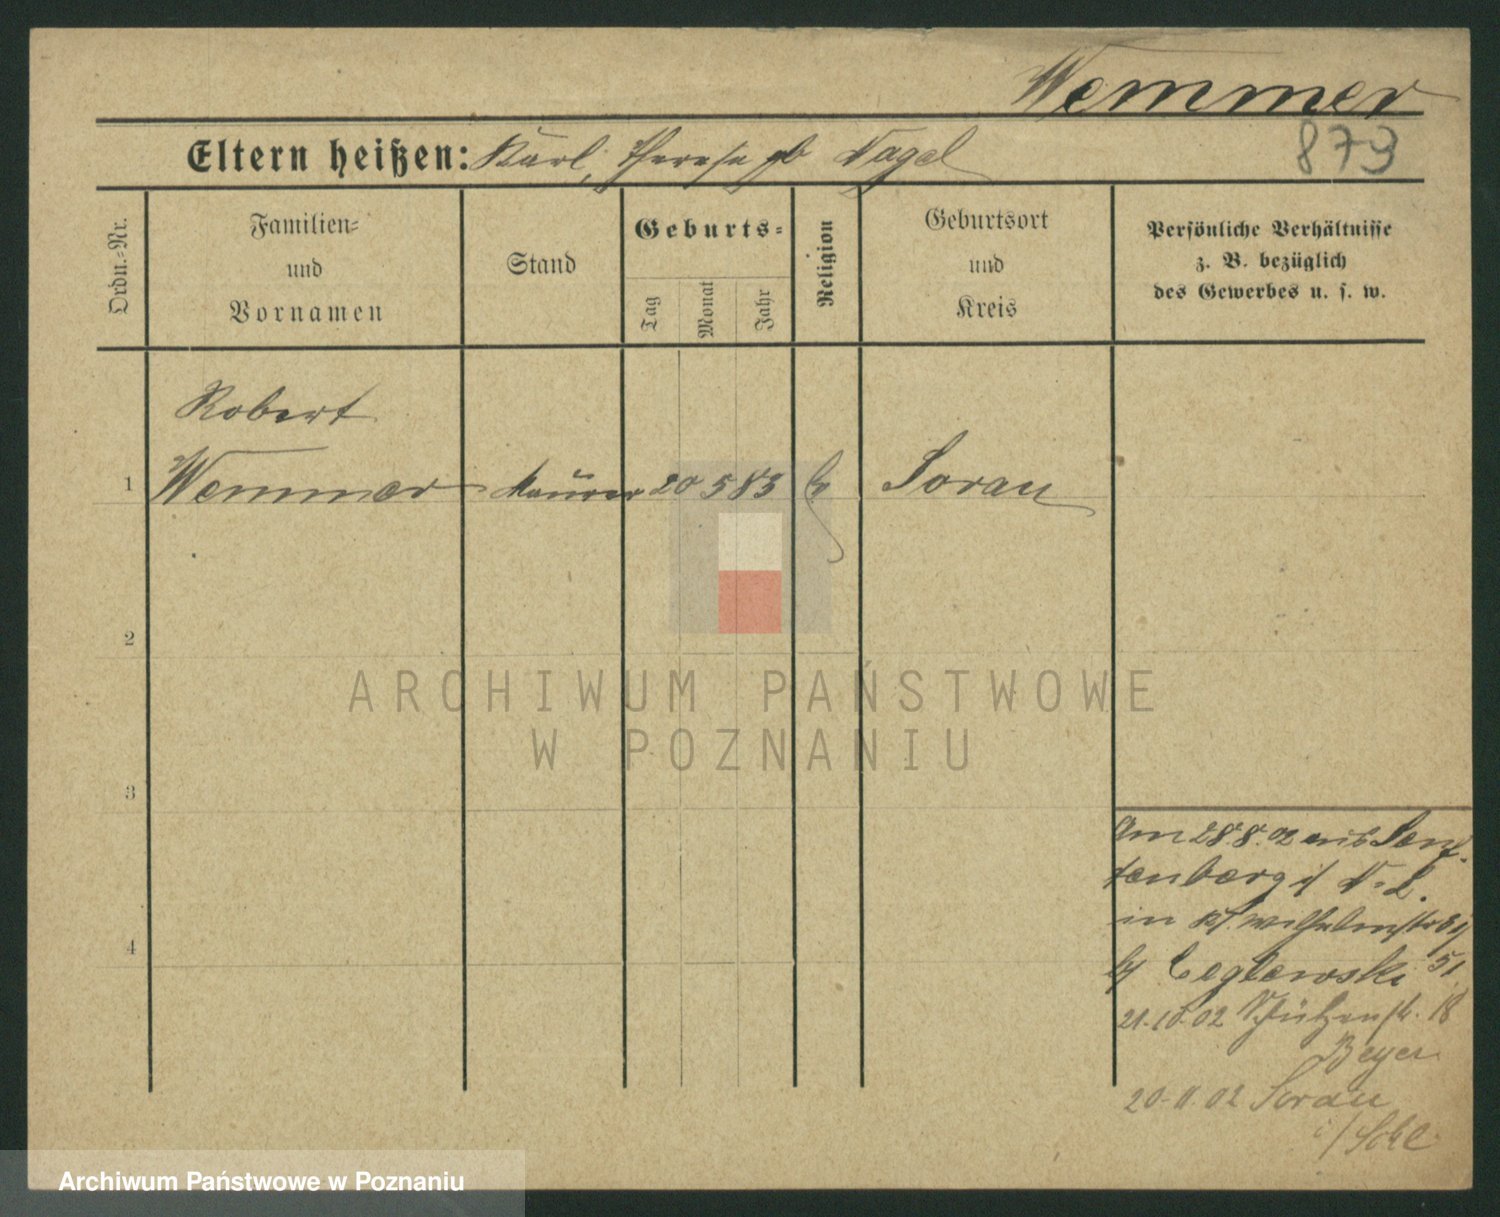 Wemmer
879
Eltern heißen: Karl, Therese gb Nagel
Ordn.-Nr.
Familien-
und
Vornamen
Stand
Geburts-
Tag
Monat
Jahr
Religion
Geburtsort
und
Kreis
Persönliche Verhältnisse
z. B. bezüglich
des Gewerbes u. s. w.
Robert
1 Wemmer Maurer 20 5 83 Sorau
2
3
4
Am 28.8.02 aus Senf-
tenberg i/ N.L.
in Wilhelmstr
Ceglewski 51
21.10.02 Schützenstr. 18
Beyer
20.11.02 Sorau
ARCHIWUM PAŃSTWOWE
W POZNANIU
Archiwum Państwowe w Poznaniu